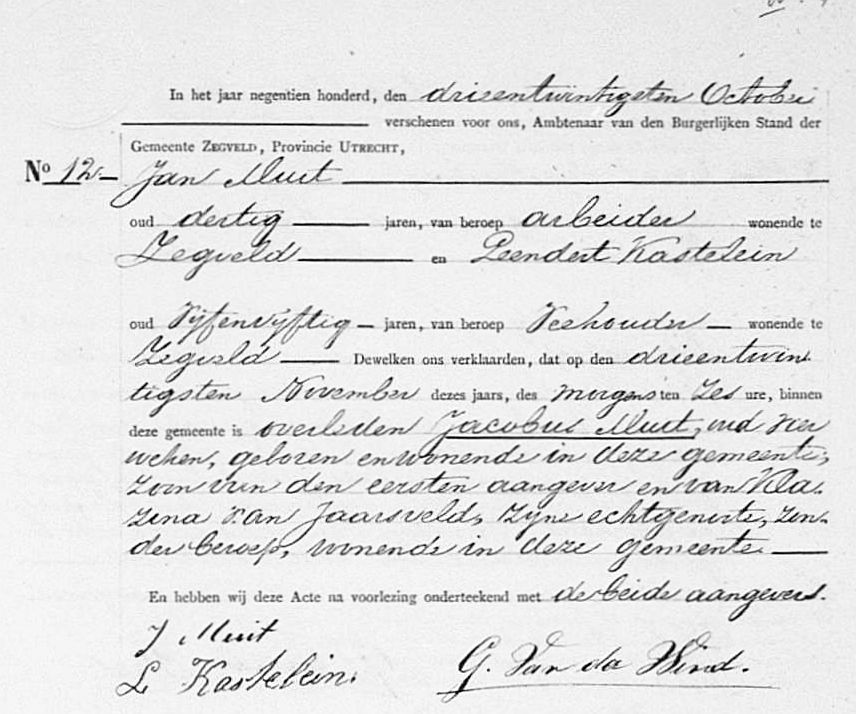 In het jaar negentien honderd, den drieentwintigsten October
verschenen voor ons, Ambtenaar van den Burgerlijken Stand der
Gemeente ZEGVELD, Provincie UTRECHT,
No 12 Jan Muit
oud dertig jaren, van beroep arbeider wonende te
Zegveld en Leendert Kastelein
oud Vijfenvijftig jaren, van beroep Veehouder wonende te
Zegveld Dewelken ons verklaarden, dat op den drieentwin
tigsten November dezes jaars, des morgens ten Zes ure, binnen
deze gemeente is overleden Jacobus Muit, oud vier
weken, geboren en wonende in deze gemeente,
zoon van den eersten aangever en van Kla-
zina van Jaarsveld, zijne echtgenoote, zon-
der beroep, wonende in deze gemeente.
En hebben wij deze Acte na voorlezing onderteekend met de beide aangevers.
J Muit
L Kastelein. G. Van da Wind.